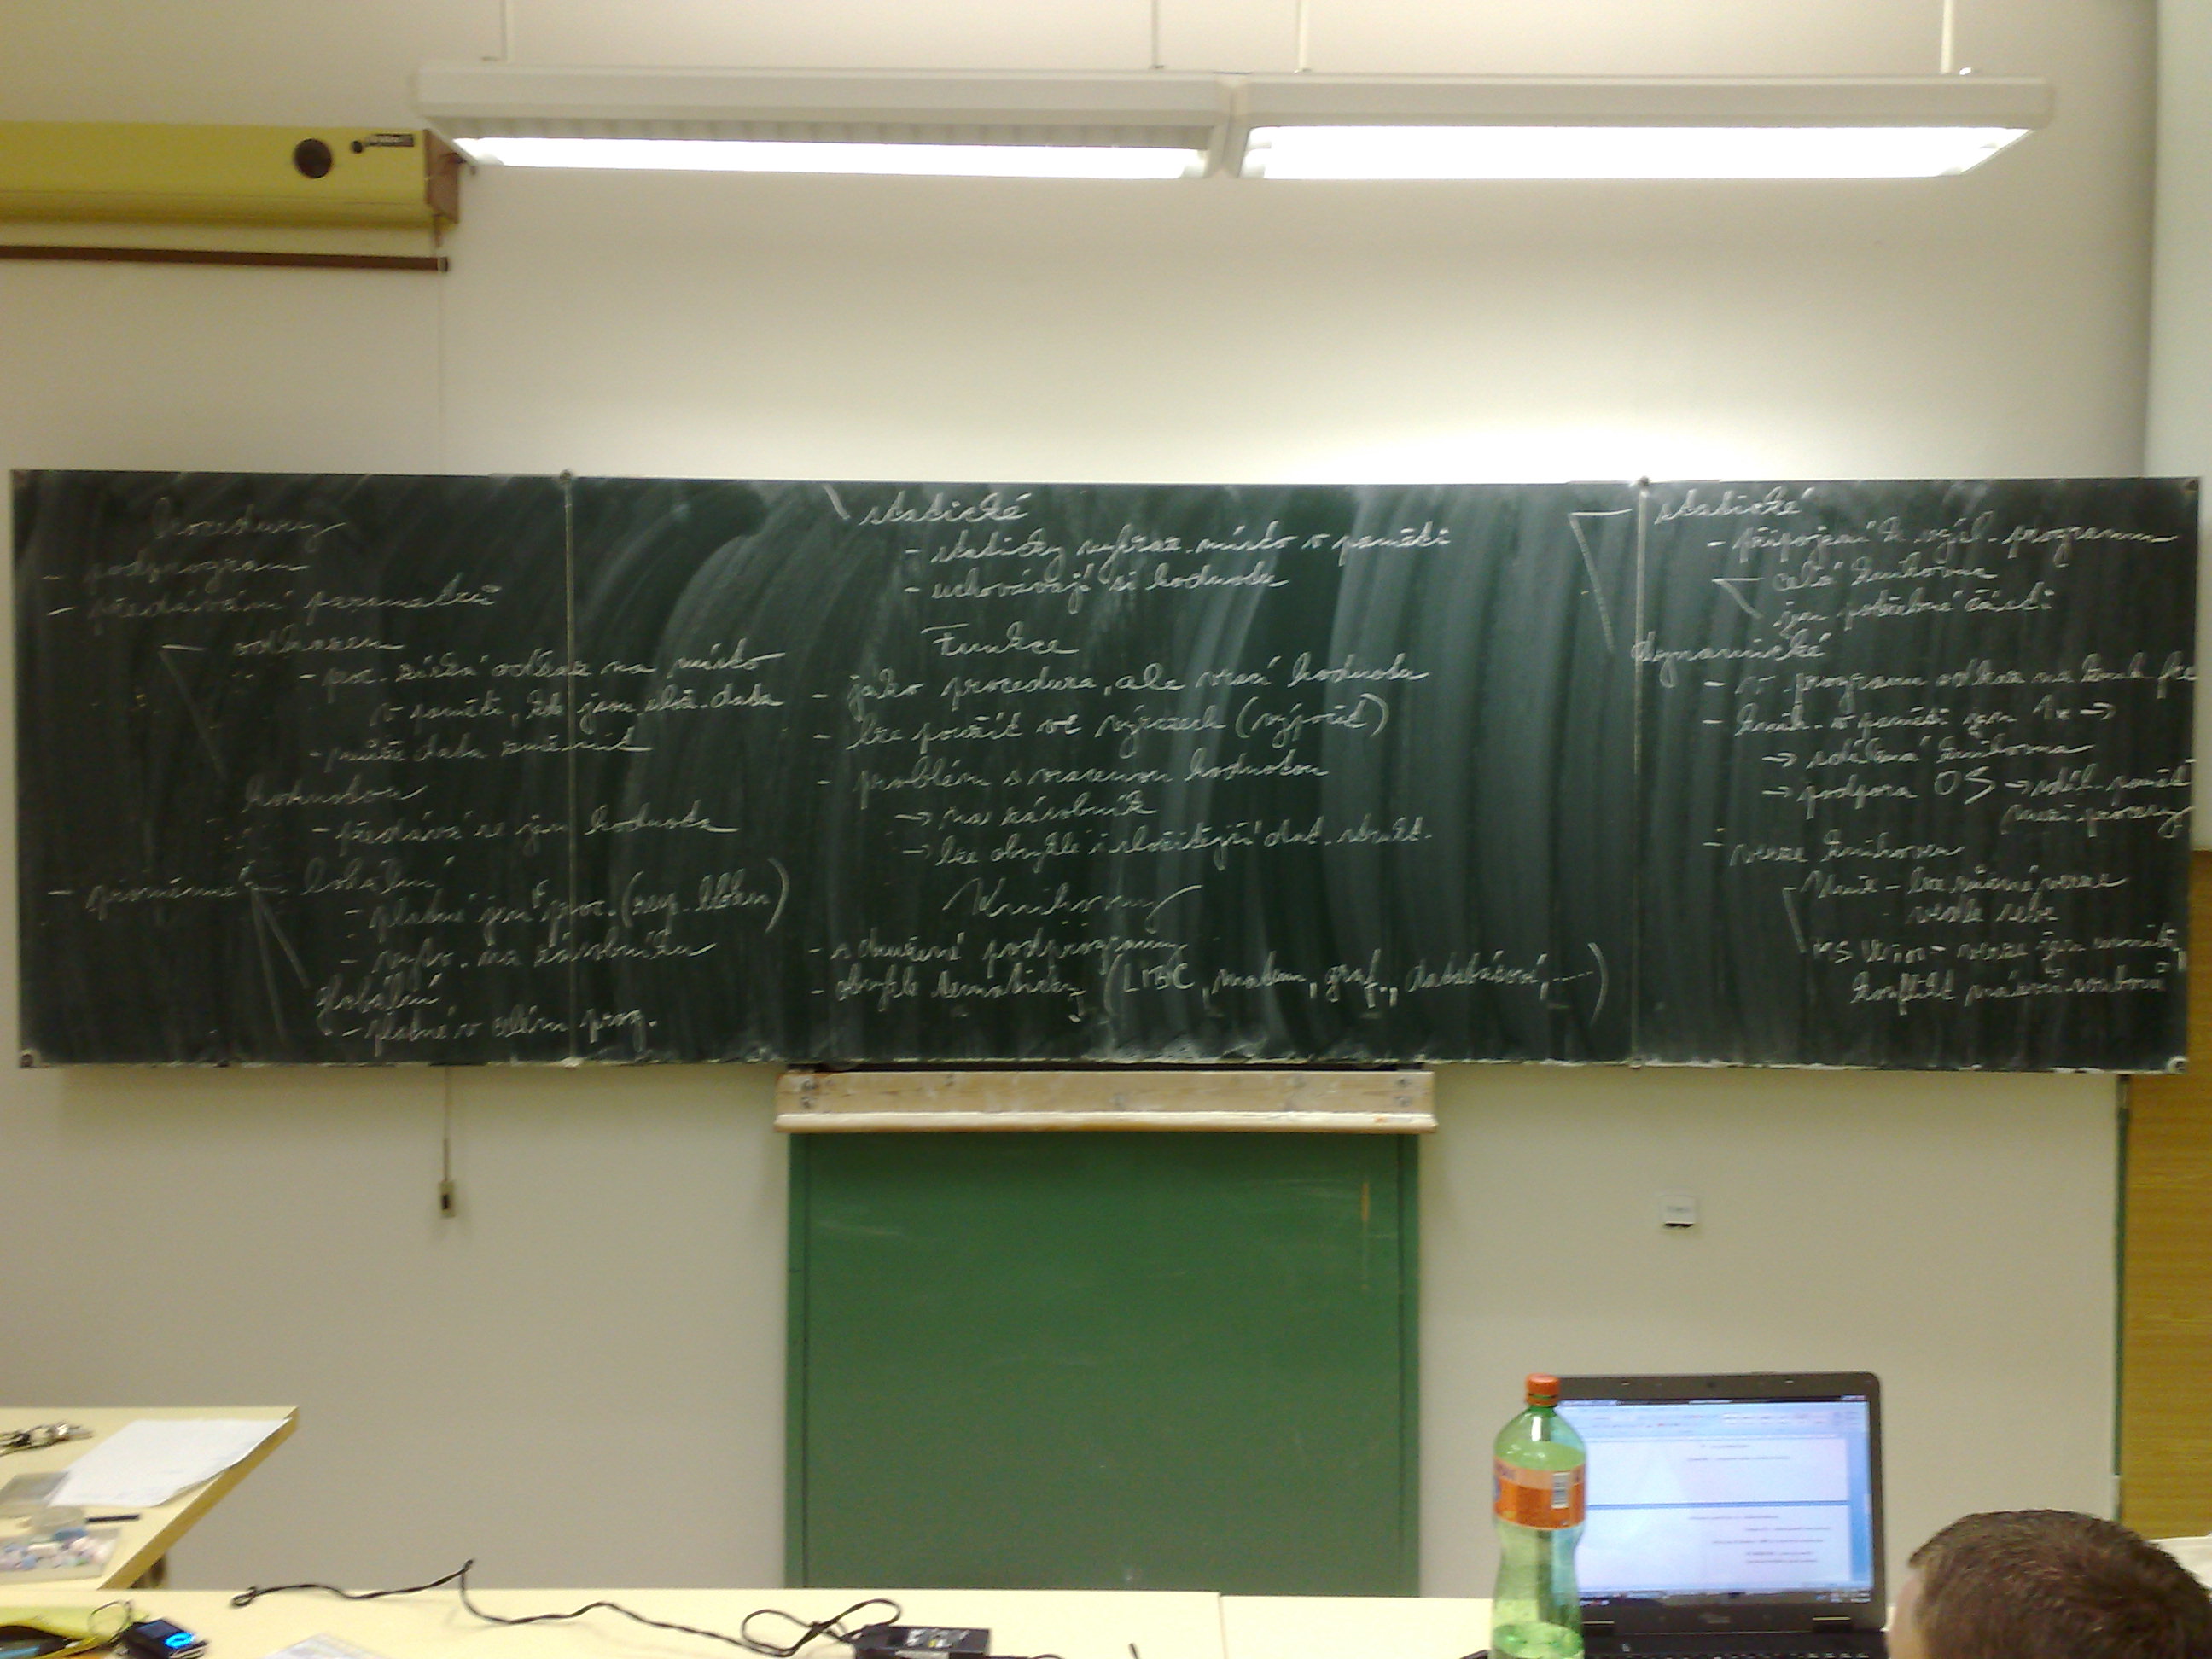 Procedury
- podprogram
- předávání parametrů
odkazem
- proc. získá odkaz na místo
v paměti, kde jsou ulož. data
- může data změnit
hodnotou
- předává se jen hodnota
- proměnné - lokální
- platné jen v proc. (resp. bloku)
- vytv. na zásobníku
globální
- platné v celém prog.
statické
- staticky vyhraz. místo v paměti
- uchovávají si hodnotu
Funkce
- jako procedura, ale vrací hodnotu
- lze použít ve výrazech (výpočet)
- problém s vracenou hodnotou
→ na zásobník
→ lze obvykle i složitější dat. strukt.
Knihovny
- sdružené podprogramy
- obvykle tematicky (LIBC, matem., graf., databázové, ....)
statické
- připojení k výsl. programu
celá knihovna
jen potřebné části
dynamické
- v programu odkaz na knih.
- knih. v paměti jen 1x →
→ sdílená knihovna
→ podpora OS → sdíl. paměti
mezi procesy
- verze knihoven
Unix - lze různé verze
vedle sebe
MS Win - verze jen uvnitř,
konflikt názvů souborů